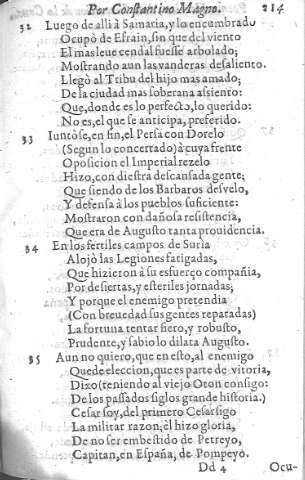 Por Constantino Magno. 214
32 Luego de alli à Samaria, y lo encumbrado
Ocupò de Efrain, sin que del viento
El mas leue cendal fuesse arbolado;
Mostrando aun las vanderas desaliento.
Llegò al Tribu del hijo mas amado;
De la ciudad mas soberana assiento:
Que, donde es lo perfecto, lo querido:
No es, el que se anticipa, preferido.
33 Iuntòse, en fin, el Persa con Dorelo
(Segun lo concertado) à cuya frente
Oposicion el Imperial rezelo
Hizo, con diestra descansada gente;
Que siendo de los Barbaros desvelo,
Y defensa à los pueblos suficiente:
Mostraron con dañosa resistencia,
Que era de Augusto tanta prouidencia.
34 En los fertiles campos de Suria
Alojò las Legiones fatigadas,
Que hizieron à su esfuerço compañia,
Por desiertas, y esteriles jornadas;
Y porque el enemigo pretendia
(Con breuedad sus gentes reparadas)
La fortuna tentar fiero, y robusto,
Prudente, y sabio lo dilata Augusto.
35 Aun no quiero, que en esto, al enemigo
Quede eleccion, que es parte de vitoria,
Dixo (teniendo al viejo Oton consigo:
De los passados siglos grande historia.)
Cesar soy, del primero Cesar sigo
La militar razon, èl hizo gloria,
De no ser embestido de Petreyo,
Capitan, en España, de Pompeyo.
Dd 4 Ocu-